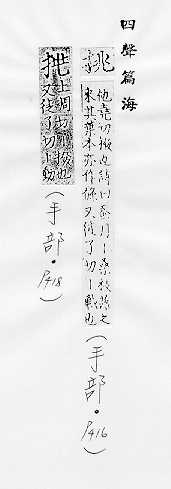 四聲篇海
挑
他堯切撥也詩曰蚕月丨桑枝落之
采其葉本亦作條又徒了切丨戰也
(手部·P416)
挑
土凋切挑撥也
又徒了切丨動
(手部·P418)